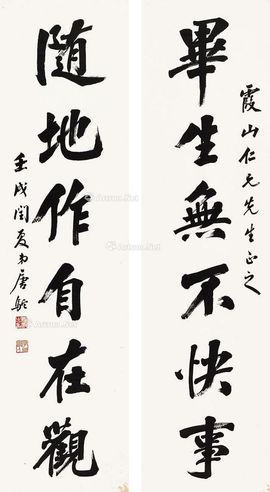 霞山仁兄先生正之
畢生無不快事
随地作自在觀
壬戌閏夏弟唐駝
Artron.Net